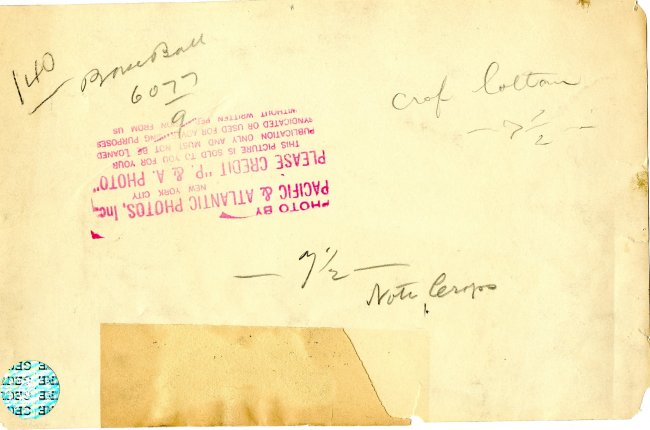 140
Base Ball
6077
9
crop bottom
- 7 1/2 -
PHOTO BY
PACIFIC & ATLANTIC PHOTOS, Inc.
NEW YORK CITY
PLEASE CREDIT "P. & A. PHOTO"
THIS PICTURE IS SOLD TO YOU FOR YOUR
PUBLICATION ONLY AND MUST NOT BE LOANED
SYNDICATED OR USED FOR ADV PURPOSES
WITHOUT WRITTEN FROM US
— 7 1/2 —
Note Crops